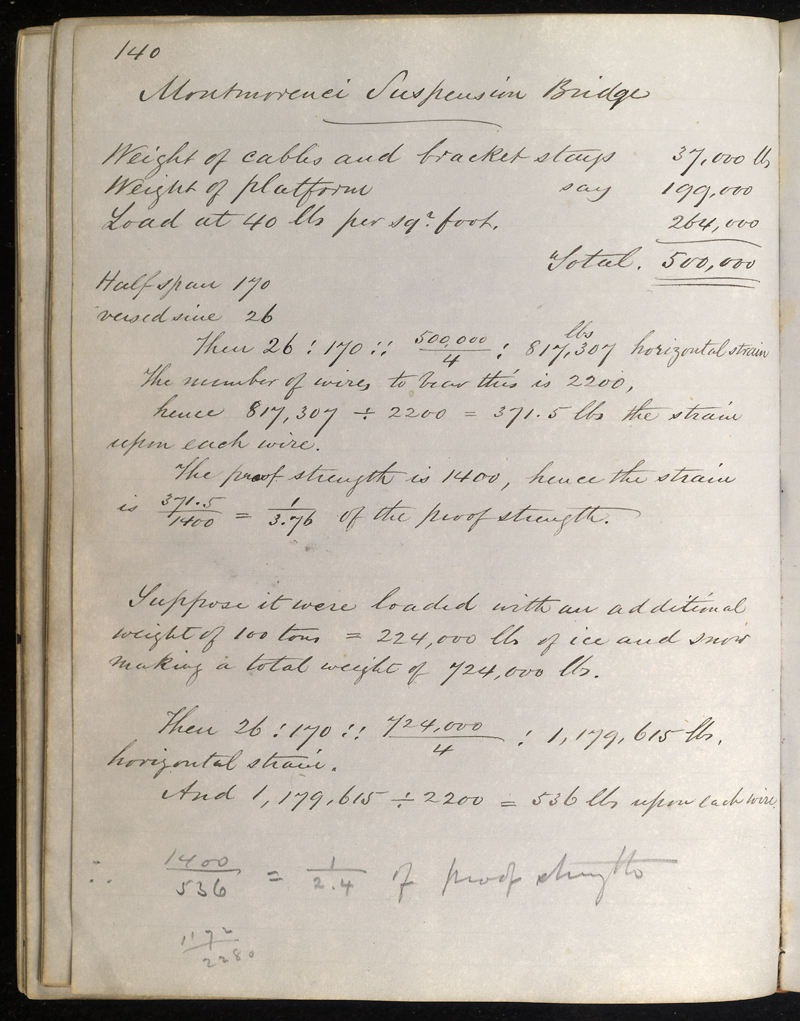 140
Montmorenci Suspension Bridge
Weight of cables and bracket stays 37,000 lb
Weight of platform say 199,000
Load at 40 lbs per sqr. foot. 264,000
Total. 500,000
Half span 170
versed sine 26
Then 26 : 170 :: 500,000/4 : 817,307 lbs horizontal strain
The number of wires to bear this is 2200,
hence 817,307 ÷ 2200 = 371.5 lbs the strain
upon each wire.
The proof strength is 1400, hence the strain
is 371.5/1400 = 1/3.76 of the proof strength.
Suppose it were loaded with an additional
weight of 100 tons = 224,000 lbs of ice and snow
making a total weight of 724,000 lbs.
Then 26 : 170 :: 724,000/4 : 1,179,615 lbs.
horizontal strain.
And 1,179,615 ÷ 2200 = 536 lbs upon each wire.
∴ 1400/536 = 1/2.4 of proof strength
1172/2280